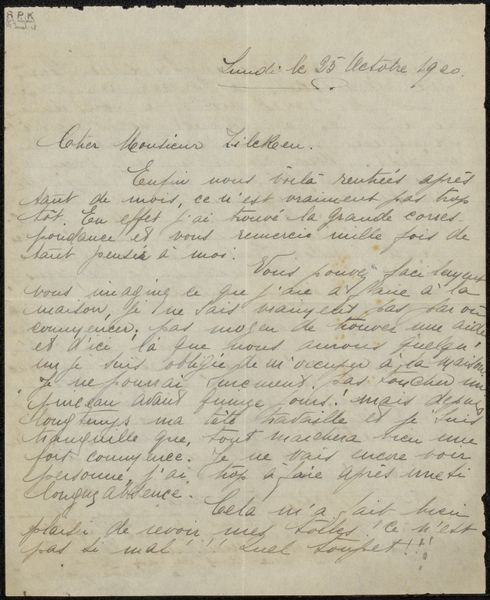 R.P.K.
Lundi le 25 Octobre 1920.
Cher Monsieur Zilcken.
Enfin nous voilà rentrées après
tant de mois, ce n'est vraiment pas trop
tôt. En effet j'ai trouvé la grande corres
pondance et vous remercie mille fois de
tant pensée à moi.
Vous pouvez facilement
vous imaginer ce que j'ai à faire à la
maison, je ne sais vraiment pas par où
commencer. pas moyen de trouver une aide
et d'ici là que nous aurons quelqu'
un je suis obligée de m'occuper à la maison
Je ne pourrai vraiment pas toucher un
pinceau avant jours! mais depuis
longtemps ma tête travaille et je suis
tranquille que, tout marchera bien une
fois commencé. Je ne vais encore voir
personne, j'ai trop à faire après une si
longue absence.
Cela m'a fait bien
plaisir de revoir mes toiles! ce n'est
pas si mal!!! quel toupet!!!